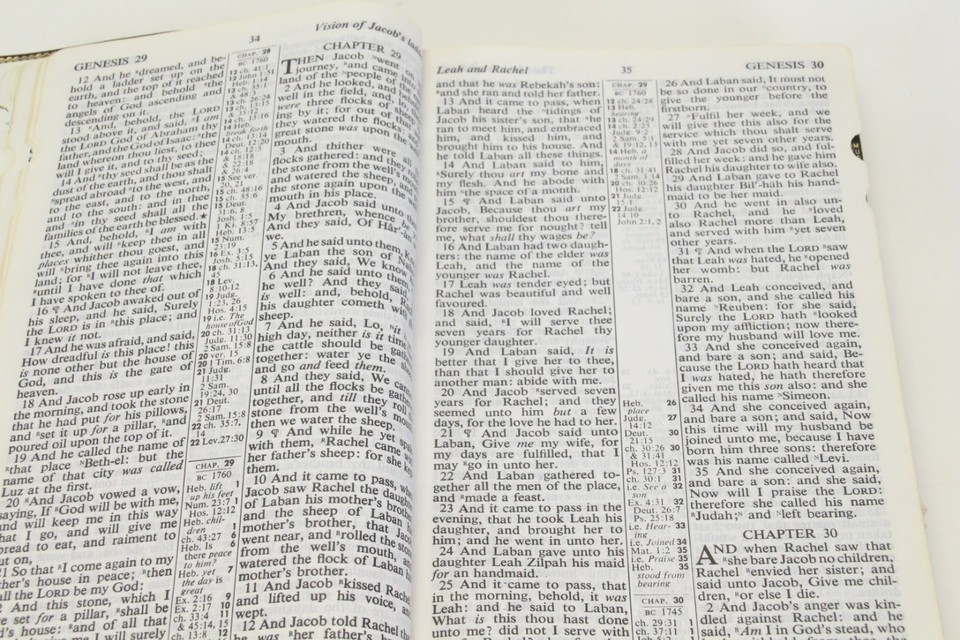 GENESIS 29
34
Vision of Jacob's
12 And he dreamed, and be-
hold a ladder set up on the
earth, and the top of it reached
to heaven: and behold the
angels of God ascending and
descending on it.
13 And, behold, the LORD
stood above it, and said, I am
the LORD God of Abraham thy
father, and the God of Isaac: the
land whereon thou liest, to thee
will I give it, and to thy seed;
14 And thy seed shall be as the
dust of the earth, and thou shalt
spread abroad to the west, and
to the east, and to the north,
and to the south: and in thee
and in thy seed shall all the
families of the earth be blessed.★
15 And, behold, I am with
thee, and will keep thee in all
places whither thou goest, and
will bring thee again into this
land; for I will not leave thee,
until I have done that which
I have spoken to thee of.
16 ¶ And Jacob awaked out of
his sleep, and he said, Surely
the LORD is in this place; and
I knew it not.
17 And he was afraid, and said,
How dreadful is this place! this
is none other but the house of
God, and this is the gate of
heaven.
18 And Jacob rose up early in
the morning, and took the stone
that he had put for his pillows,
and set it up for a pillar, and
poured oil upon the top of it.
19 And he called the name of
that place Beth-el: but the
name of that city was called
Luz at the first.
20 And Jacob vowed a vow,
saying, If God will be with me,
and will keep me in this way
that I go, and will give me
bread to eat, and raiment to
put on,
21 So that I come again to my
father's house in peace; then
shall the LORD be my God:
And this stone, which I
set for a pillar, shall be
God's house: and of all that
me I will surely
CHAP. 28
BC 1760
CHAP. 29
BC 1760
Heb. lift
up his feet
Num. 23:7
Hos. 12:12
Heb. chil-
dren
ch. 43:27
Heb. Is
there peace
to him?
Heb. yet
the day is
great
Ex. 2:16
Ex. 2:17
ch. 33:4
CHAPTER 29
THEN Jacob went on
journey, and came
land of the people of
2 And he looked, and
well in the field, and
were three flocks of
ing by it; for out of
they watered the flocks:
great stone was upon
mouth.
3 And thither were all
flocks gathered: and they
the stone from the well's
and watered the sheep, and
the stone again upon the
mouth in his place.
4 And Jacob said unto
My brethren, whence
And they said, Of
we.
5 And he said unto them,
ye Laban the son of
And they said, We know
6 And he said unto them,
he well? And they said,
is well: and, behold,
his daughter cometh with
sheep.
7 And he said, Lo, it
high day, neither is it time
the cattle should be
together: water ye the
and go and feed them.
8 And they said, We
until all the flocks be
together, and till they roll
stone from the well's
then we water the sheep.
9 ¶ And while he yet
with them, Rachel came
her father's sheep: for she
them.
10 And it came to pass,
Jacob saw Rachel the
of Laban his mother's
and the sheep of Laban
mother's brother, that
went near, and rolled the
from the well's mouth,
watered the flock of Laban
mother's brother.
11 And Jacob kissed Rachel,
and lifted up his voice, and
wept.
12 And Jacob told Rachel
he was her father's
Leah and Rachel
35
GENESIS 30
and that he was Rebekah's son:
and she ran and told her father.
13 And it came to pass, when
Laban heard the tidings of
Jacob his sister's son, that he
ran to meet him, and embraced
him, and kissed him, and
brought him to his house. And
he told Laban all these things.
14 And Laban said to him,
Surely thou art my bone and
my flesh. And he abode with
him the space of a month.
15 ¶ And Laban said unto
Jacob, Because thou art my
brother, shouldest thou there-
fore serve me for nought? tell
me, what shall thy wages be?
16 And Laban had two daugh-
ters: the name of the elder was
Leah, and the name of the
younger was Rachel.
17 Leah was tender eyed; but
Rachel was beautiful and well
favoured.
18 And Jacob loved Rachel;
and said, I will serve thee
seven years for Rachel thy
younger daughter.
19 And Laban said, It is
better that I give her to thee,
than that I should give her to
another man: abide with me.
20 And Jacob served seven
years for Rachel; and they
seemed unto him but a few
days, for the love he had to her.
21 ¶ And Jacob said unto
Laban, Give me my wife, for
my days are fulfilled, that I
may go in unto her.
22 And Laban gathered to-
gether all the men of the place,
and made a feast.
23 And it came to pass in the
evening, that he took Leah his
daughter, and brought her to
him; and he went in unto her.
24 And Laban gave unto his
daughter Leah Zilpah his maid
for an handmaid.
25 And it came to pass, that
in the morning, behold, it was
Leah: and he said to Laban,
What is this thou hast done
unto me? did not I serve with
CHAP. 29
BC 1760
Heb. 26
place
Judg. 27
14:12
Deut. 30
21:15
ch. 30:26 30
& 31:41
Hos. 12:12
Ps. 127:3 31
ch. 30:1 31
i.e. See a 32
son
Ex. 4:31 32
Deut. 26:7
Ps. 25:18
i.e. Hear- 33
ing
i.e. Joined 34
Mat. 1:2 35
i.e. Praise 35
Heb. 35
stood from
bearing
CHAP. 30
BC 1745
ch. 29:31
ch. 37:11
26 And Laban said, It must not
be so done in our country, to
give the younger before the
firstborn.
27 Fulfil her week, and we
will give thee this also for the
service which thou shalt serve
with me yet seven other years.
28 And Jacob did so, and ful-
filled her week: and he gave him
Rachel his daughter to wife also.
29 And Laban gave to Rachel
his daughter Bil-hah his hand-
maid to be her maid.
30 And he went in also un-
to Rachel, and he loved
also Rachel more than Leah,
and served with him yet seven
other years.
31 ¶ And when the LORD saw
that Leah was hated, he opened
her womb: but Rachel was
barren.
32 And Leah conceived, and
bare a son, and she called his
name Reuben: for she said,
Surely the LORD hath looked
upon my affliction; now there-
fore my husband will love me.
33 And she conceived again,
and bare a son; and said, Be-
cause the LORD hath heard that
I was hated, he hath therefore
given me this son also: and she
called his name Simeon.
34 And she conceived again,
and bare a son; and said, Now
this time will my husband be
joined unto me, because I have
born him three sons: therefore
was his name called Levi.
35 And she conceived again,
and bare a son: and she said,
Now will I praise the LORD:
therefore she called his name
Judah; and left bearing.
CHAPTER 30
AND when Rachel saw that
she bare Jacob no children,
Rachel envied her sister; and
said unto Jacob, Give me chil-
dren, or else I die.
2 And Jacob's anger was kin-
dled against Rachel: and he
said, Am I in God's stead, who